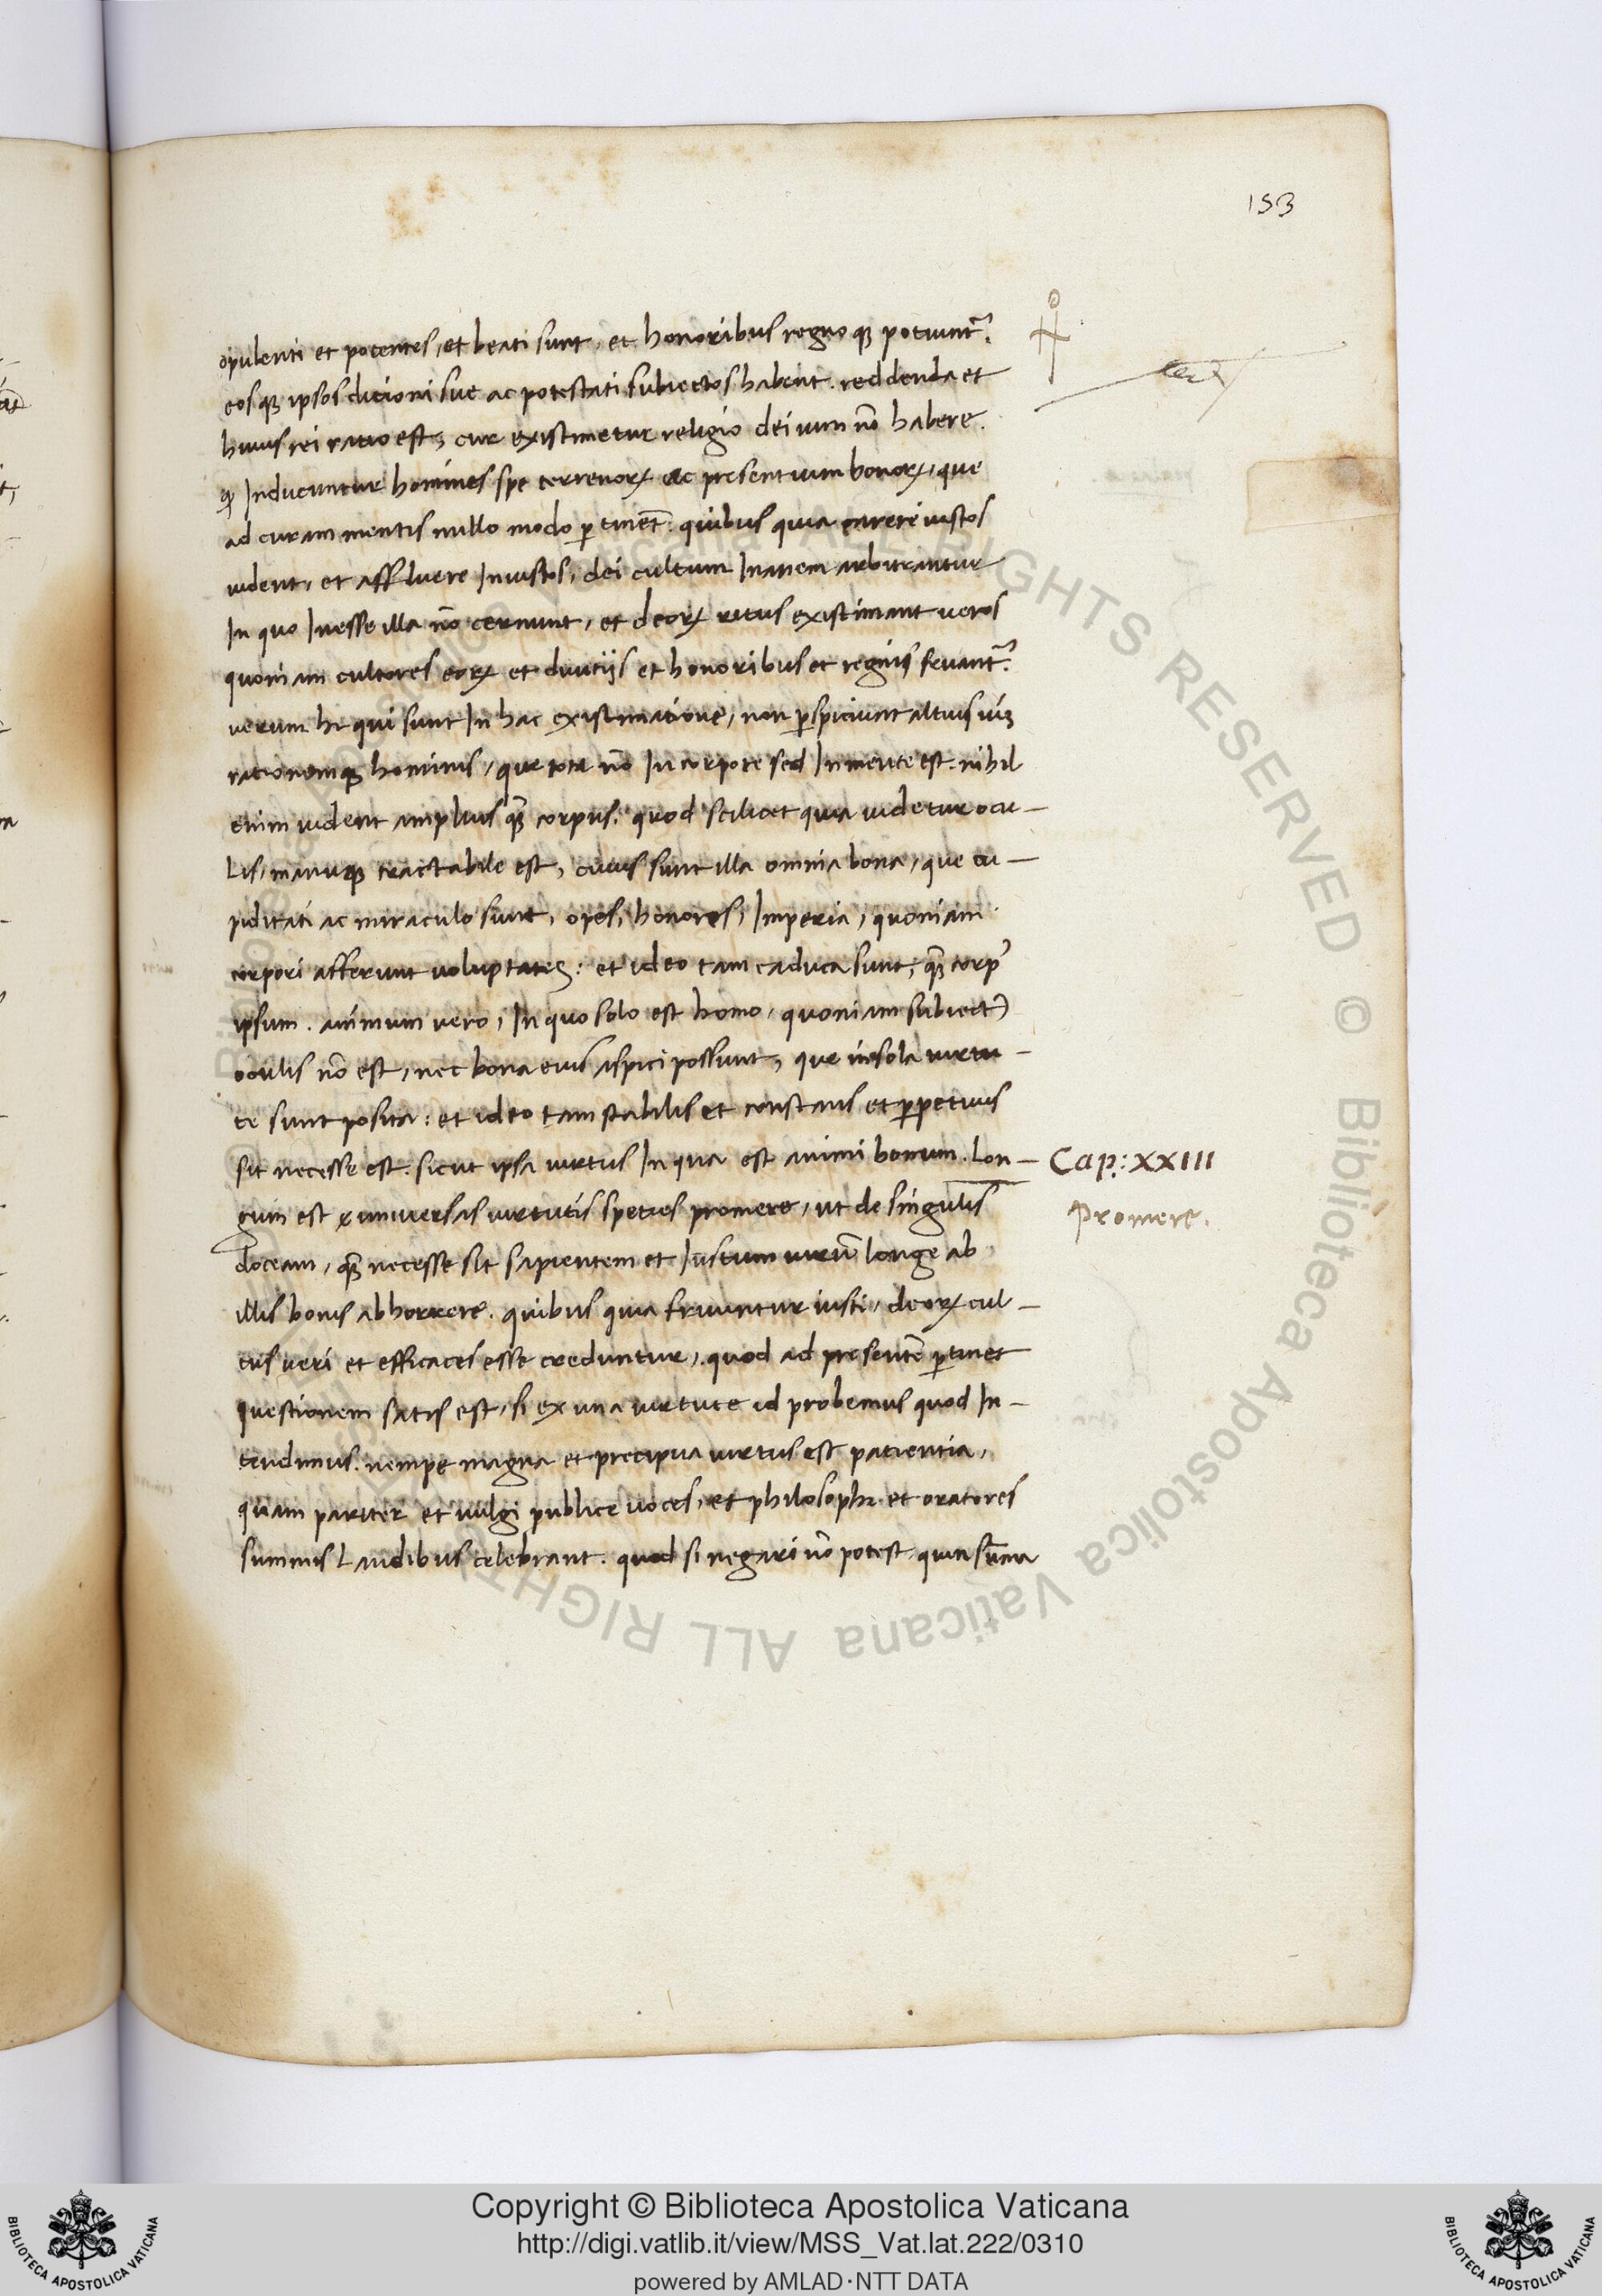 153
opulenti et potentes, et beati sunt, et honoribus regnoqꝫ potiunt᷑.
eosqꝫ ipsos dicioni sue ac potestati subiectos habent. reddenda et
huius rei ratio est, cur existimetur religio dei uim nō habere.
qꝫ Inducuntur homines spe terrenoꝝ ac presentium bonoꝝ, que
ad curam mentis nullo modo ꝑtinēt. quibus quia carere iustos
uident, et affluere Iniustos, dei cultum Inanem arbitrantur
In quo Inesse illa nō cernunt, et deoꝝ ritus existimant ueros
quoniam cultores eoꝝ et diuitijs et honoribus et regnis fruant᷑.
uerum hi qui sunt In hac existimatione, non ꝑspiciunt altius uiꝫ
rationemqꝫ hominis, que tota nō In corpore sed In mente est. nihil
enim uident amplius qꝫ̄ corpus. quod scilicet quia uidetur ocu-
lis, manuqꝫ tractabile est, cuius sunt illa omnia bona, que cu-
piditati ac miraculo sunt, opes, honores, Imperia, quoniam
corpori afferunt uoluptates: et ideo tam caduca sunt, qꝫ̄ corpꝰ
ipsum. animum uero, In quo solo est homo, quoniam subiectꝰ
oculis nō est, nec bona eius aspici possunt, que in sola uirtu-
te sunt posita: et ideo tam stabilis et constans et ꝑpetuus
sit necesse est. sicut ipsa uirtus In qua est animi bonum. Lon-
Cap: XXIII
gum est uniuersas uirtutis speties promere, ut de singulis
Promere.
doceam, qꝫ̄ necesse sit sapientem et Iustum uirū longe ab
illis bonis abhorrere. quibus quia fruuntur iusti, deoꝝ cul-
tus ueri et efficaces esse creduntur. quod ad presentē ꝑtinet
questionem satis est, si ex una uirtute id probemus quod In-
tendimus. nempe magna et precipua uirtus est patientia,
quam pariter et uulgi publice uoces, et philosophi et oratores
summis Laudibus celebrant. quod si negari nō potest quin sūma
Copyright © Biblioteca Apostolica Vaticana
http://digi.vatlib.it/view/MSS_Vat.lat.222/0310
powered by AMLAD·NTT DATA
BIBLIOTECA APOSTOLICA VATICANA
BIBLIOTECA APOSTOLICA VATICANA
© Biblioteca Apostolica Vaticana ALL RIGHTS RESERVED